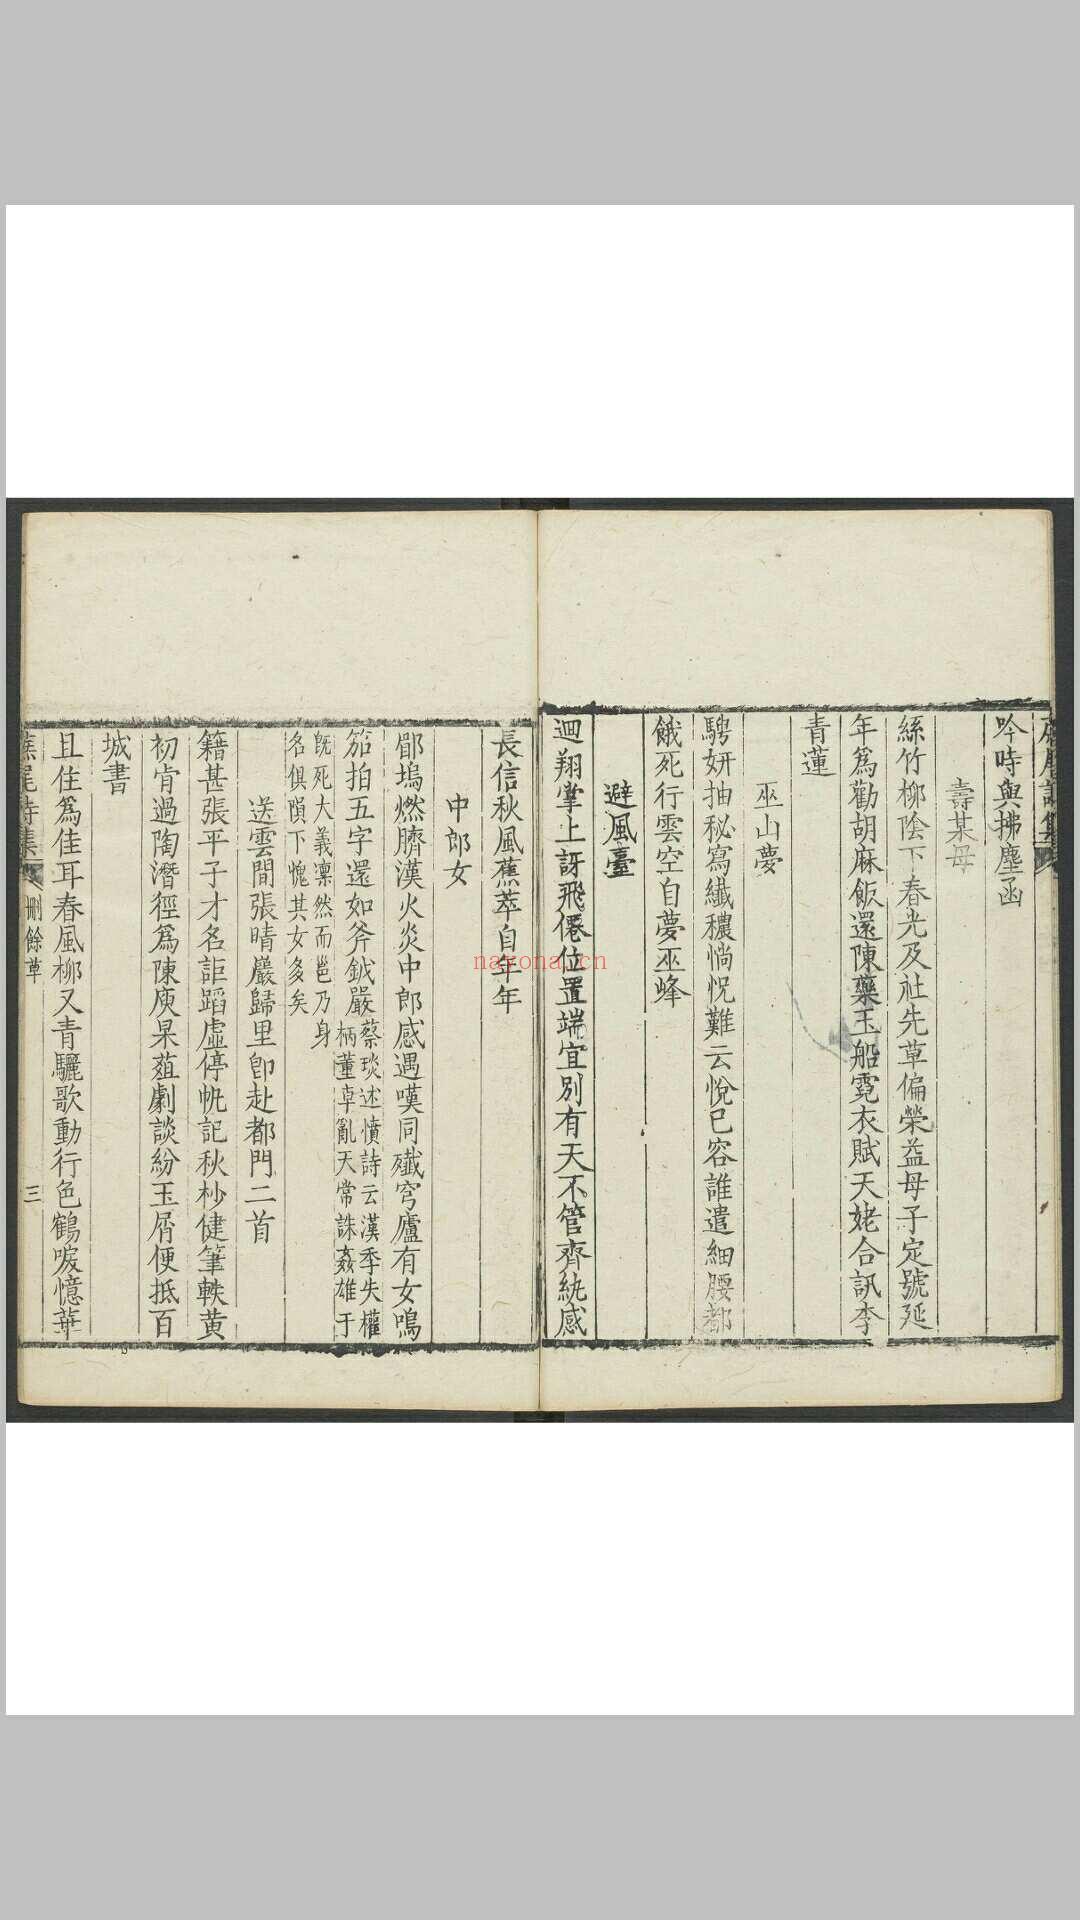 吟時與拂塵函
壽某母
絲竹柳陰下春光及社先草偏榮益母子定號延
年爲勸胡麻飯還陳藥玉船霓衣賦天姥合訊李
青蓮
巫山夢
騁妍抽秘寫纖穠惝怳難云悅已容誰遣細腰都
餓死行雲空自夢巫峰
避風臺
迴翔掌上訝飛僊位置端宜別有天不管齊紈感
長信秋風蕉萃自年年
中郎女
郿塢燃臍漢火炎中郎感遇嘆同殲穹廬有女鳴
笳拍五字還如斧鉞嚴
蔡琰述憤詩云漢季失權
柄董卓亂天常誅姦雄于
旣死大義凛然而邕乃身
名俱隕下愧其女多矣
送雲間張晴巖歸里卽赴都門二首
籍甚張平子才名詎蹈虛停帆記秋杪健筆軼黃
初肯過陶潛徑爲陳庾杲葅劇談紛玉屑便抵百
城書
且住爲佳耳春風柳又青驪歌動行色鶴唳憶華
蕉尾詩集
刪餘草
三
nayona.cn